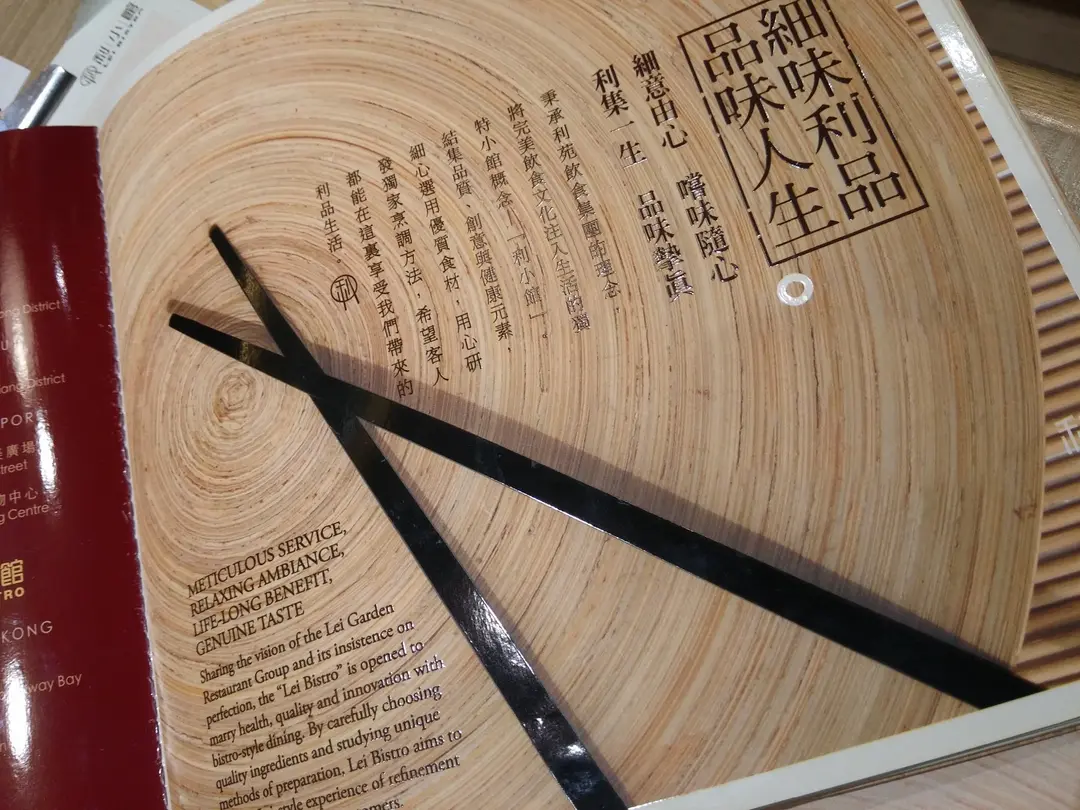 利小館
LEI BISTRO
細味利品
品味人生
細意由心 嚐味隨心
利集一生 品味摯真
秉承利苑飲食集團的理念,
將完美飲食文化注入生活的獨
特小館概念—「利小館」。
結集品質、創意與健康元素,
細心選用優質食材,用心研
發獨家烹調方法,希望客人
都能在這裏享受我們帶來的
利品生活。
METICULOUS SERVICE,
RELAXING AMBIANCE,
LIFE-LONG BENEFIT,
GENUINE TASTE
Sharing the vision of the Lei Garden
Restaurant Group and its insistence on
perfection, the “Lei Bistro” is opened to
marry health, quality and innovation with
bistro-style dining. By carefully choosing
quality ingredients and studying unique
methods of preparation, Lei Bistro aims to
style experience of refinement
District
District
廣場
treet
物中心
Centre
館
TRO
KONG
way Bay